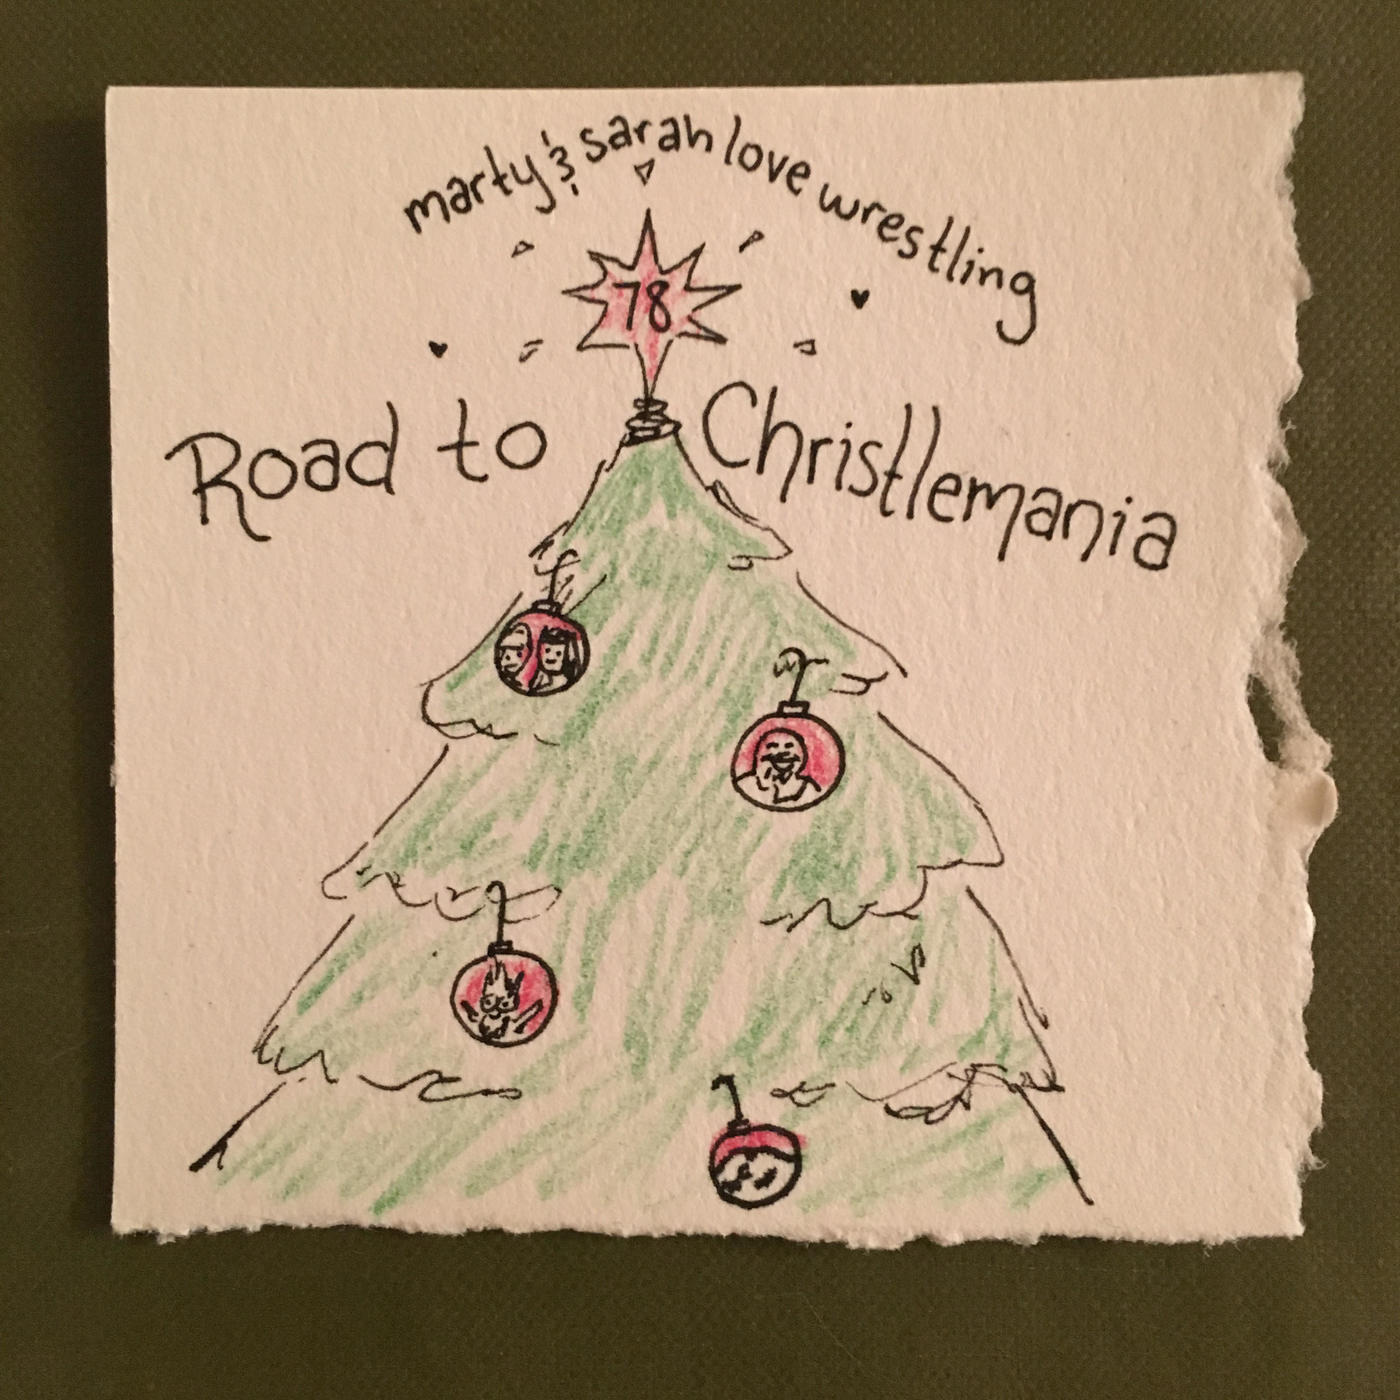 marty & sarah love wrestling
78
Road to Christlemania